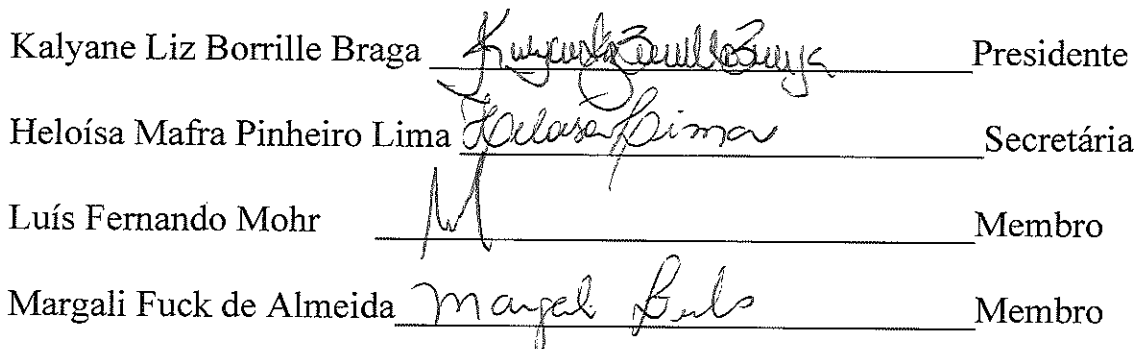 Kalyane Liz Borrille Braga Presidente
Heloísa Mafra Pinheiro Lima Heloisa Lima Secretária
Luís Fernando Mohr Membro
Margali Fuck de Almeida Margali Membro